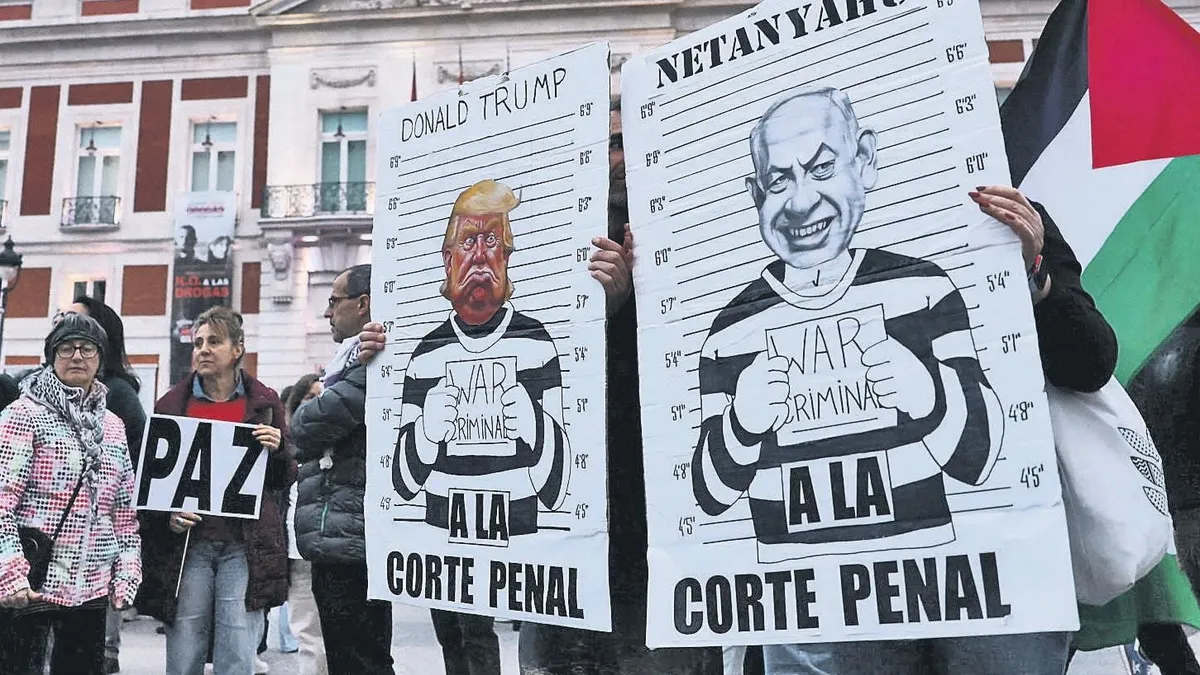 DONALD TRUMP
6'9
6'6
6'3
6'0
5'7
5'4
5'1
4'8
4'5
WAR
CRIMINAL
A LA
CORTE PENAL
NETANYAHU
6'9"
6'6"
6'3"
6'0"
5'7"
5'4"
5'1"
4'8"
4'5"
WAR
CRIMINAL
A LA
CORTE PENAL
PAZ
A LAS
DROGAS